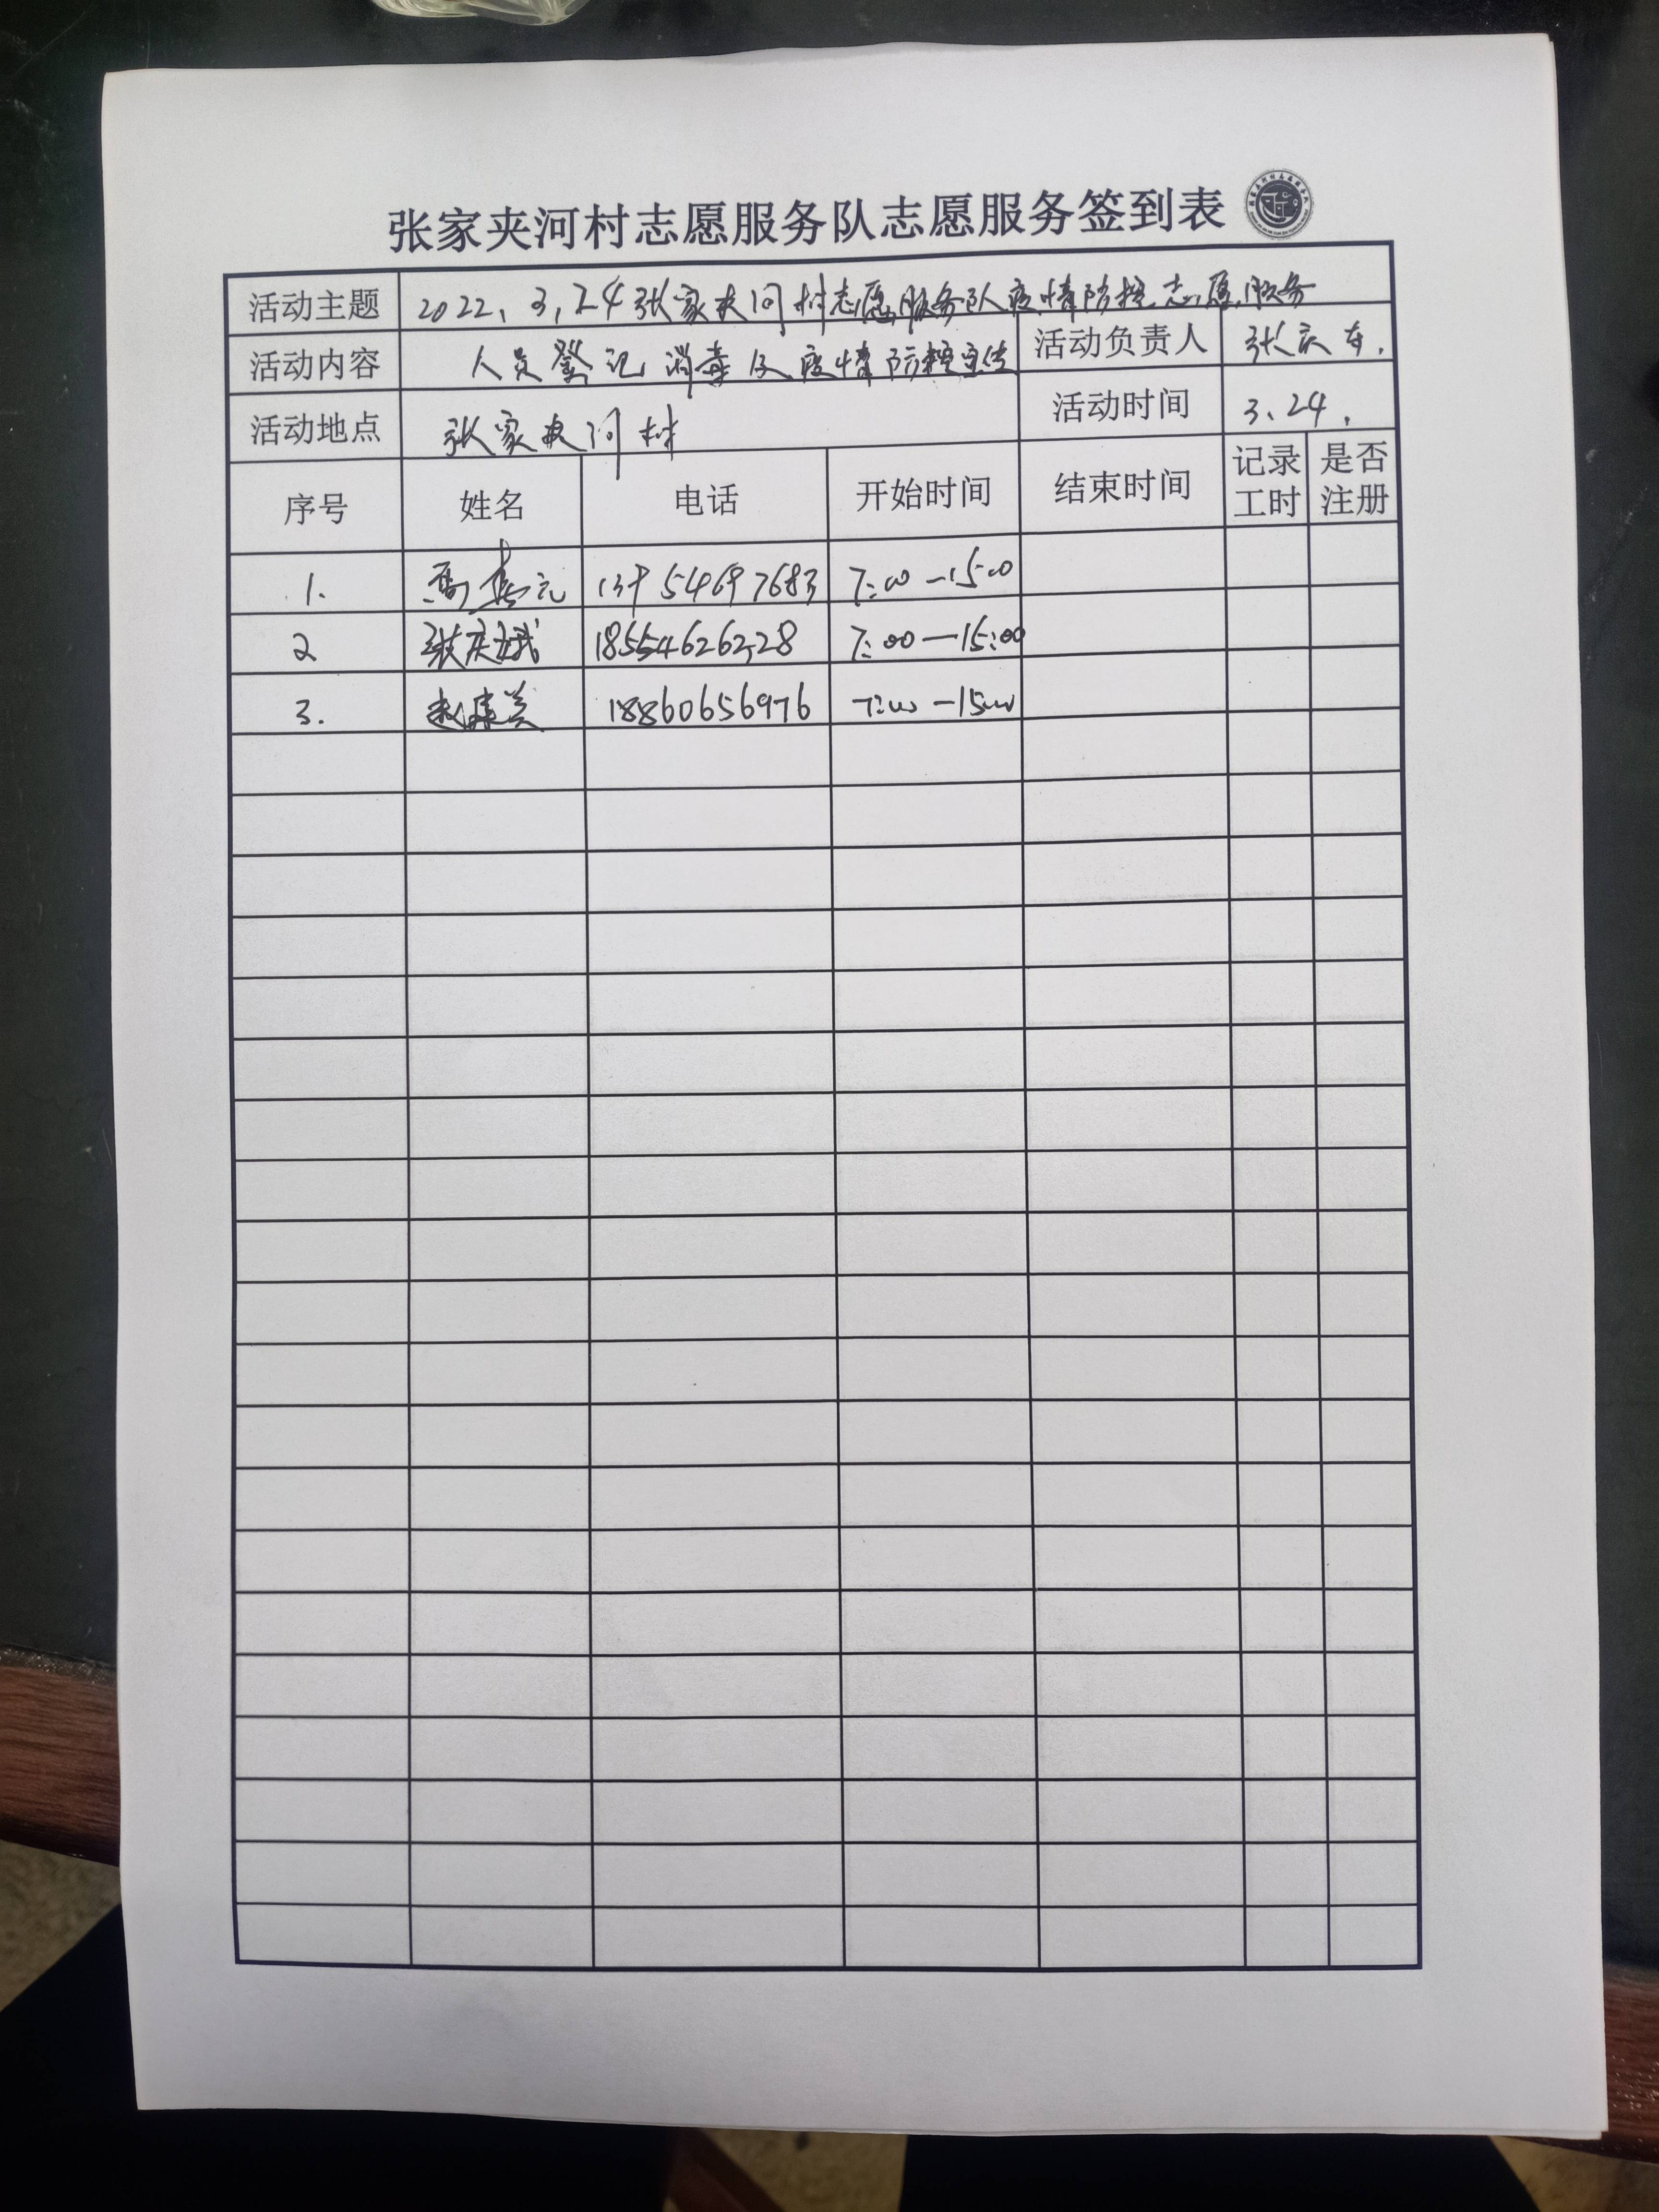 张家夹河村志愿服务队志愿服务签到表
活动主题 2022、3、24张家夹河村志愿服务队疫情防控志愿服务
活动内容 人员登记消毒及疫情防控宣传 活动负责人 张庆
活动地点 张家夹河村 活动时间 3、24、
序号 姓名 电话 开始时间 结束时间 记录工时 是否注册
1. 元 7:00—15:00
2 张庆娥 18554626228 7:00—15:00
3. 赵美 18860656976 7:00—15:00